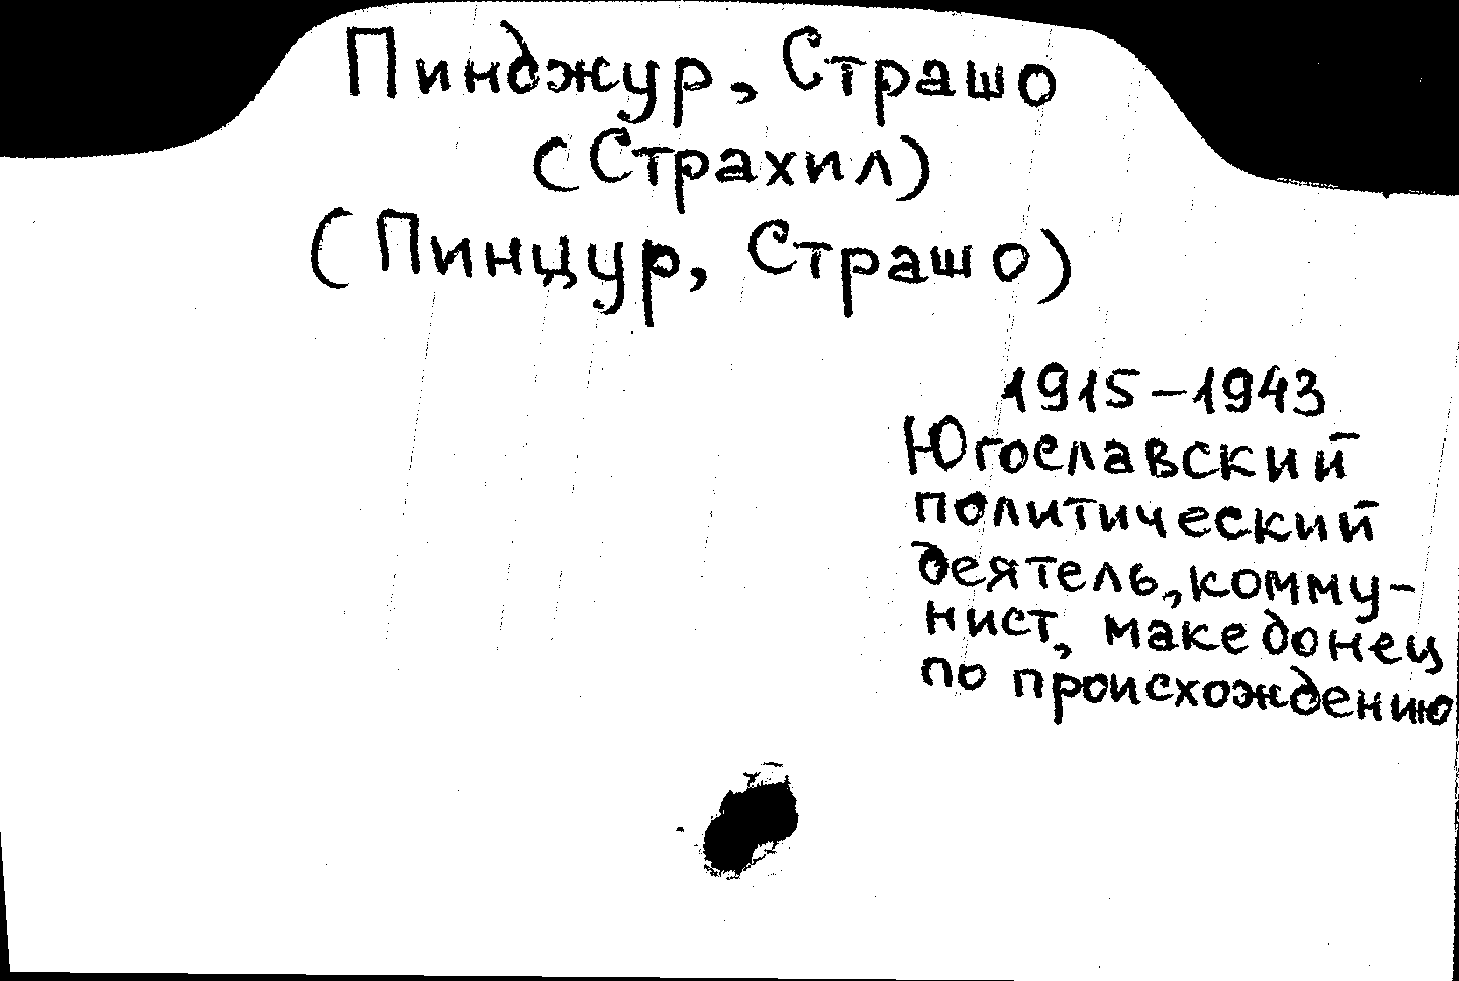 Пинджур, Страшо
(Страхил)
(Пинцур, Страшо)
1915–1943
Югославский
политический
деятель, комму-
нист, македонец
по происхождению